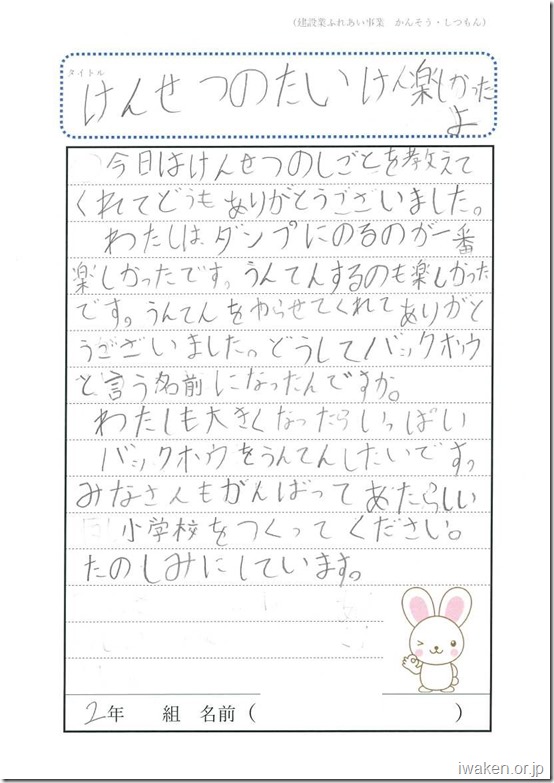 (建設業ふれあい事業　かんそう・しつもん)
タイトル
けんせつのたいけん楽しかった
よ
今日はけんせつのしごとを教えて
くれてどうもありがとうございました。
わたしはダンプにのるのが一番
楽しかったです。うんてんするのも楽しかった
です。うんてんをやらせてくれてありがと
うございました。どうしてバックホウ
と言う名前になったんですか。
わたしも大きくなったらいっぱい
バックホウをうんてんしたいです。
みなさんもがんばってあたらしい
小学校をつくってください。
たのしみにしています。
2年　組　名前 (　)
iwaken.or.jp